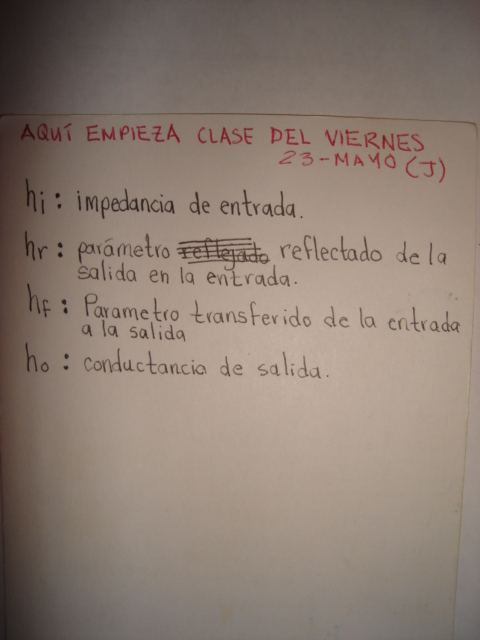 AQUÍ EMPIEZA CLASE DEL VIERNES
23-MAYO (J)
hi : impedancia de entrada.
hr : parámetro reflejado reflectado de la
salida en la entrada.
hf : Parametro transferido de la entrada
a la salida
ho : conductancia de salida.